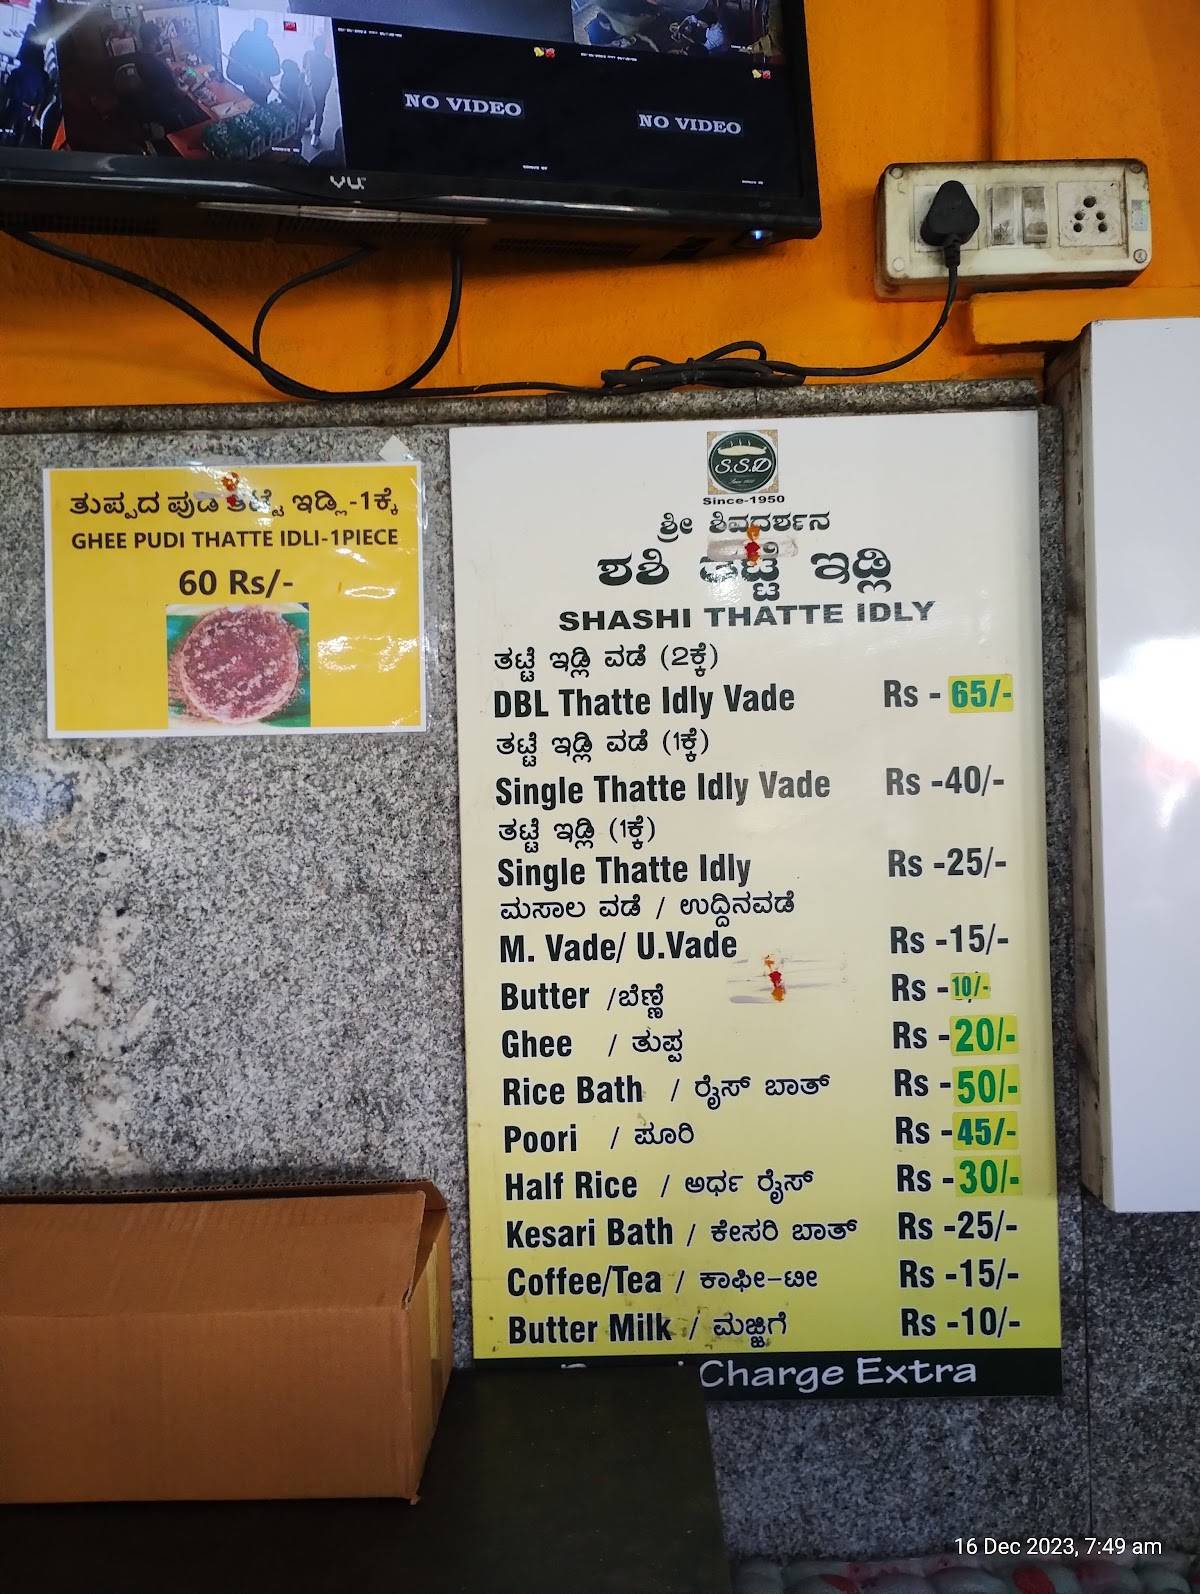 NO VIDEO
NO VIDEO
VU
ತುಪ್ಪದ ಪುಡಿ ತಟ್ಟೆ ಇಡ್ಲಿ -1ಕ್ಕೆ
GHEE PUDI THATTE IDLI-1PIECE
60 Rs/-
S.S.D
Since-1950
ಶ್ರೀ ಶಿವದರ್ಶನ
ಶಶಿ ತಟ್ಟೆ ಇಡ್ಲಿ
SHASHI THATTE IDLY
ತಟ್ಟೆ ಇಡ್ಲಿ ವಡೆ (2ಕ್ಕೆ)
DBL Thatte Idly Vade Rs - 65/-
ತಟ್ಟೆ ಇಡ್ಲಿ ವಡೆ (1ಕ್ಕೆ)
Single Thatte Idly Vade Rs -40/-
ತಟ್ಟೆ ಇಡ್ಲಿ (1ಕ್ಕೆ)
Single Thatte Idly Rs -25/-
ಮಸಾಲ ವಡೆ / ಉದ್ದಿನವಡೆ
M. Vade/ U.Vade Rs -15/-
Butter /ಬೆಣ್ಣೆ Rs -10/-
Ghee / ತುಪ್ಪ Rs -20/-
Rice Bath / ರೈಸ್ ಬಾತ್ Rs -50/-
Poori / ಪೂರಿ Rs -45/-
Half Rice / ಅರ್ಧ ರೈಸ್ Rs -30/-
Kesari Bath / ಕೇಸರಿ ಬಾತ್ Rs -25/-
Coffee/Tea / ಕಾಫೀ-ಟೀ Rs -15/-
Butter Milk / ಮಜ್ಜಿಗೆ Rs -10/-
Charge Extra
16 Dec 2023, 7:49 am